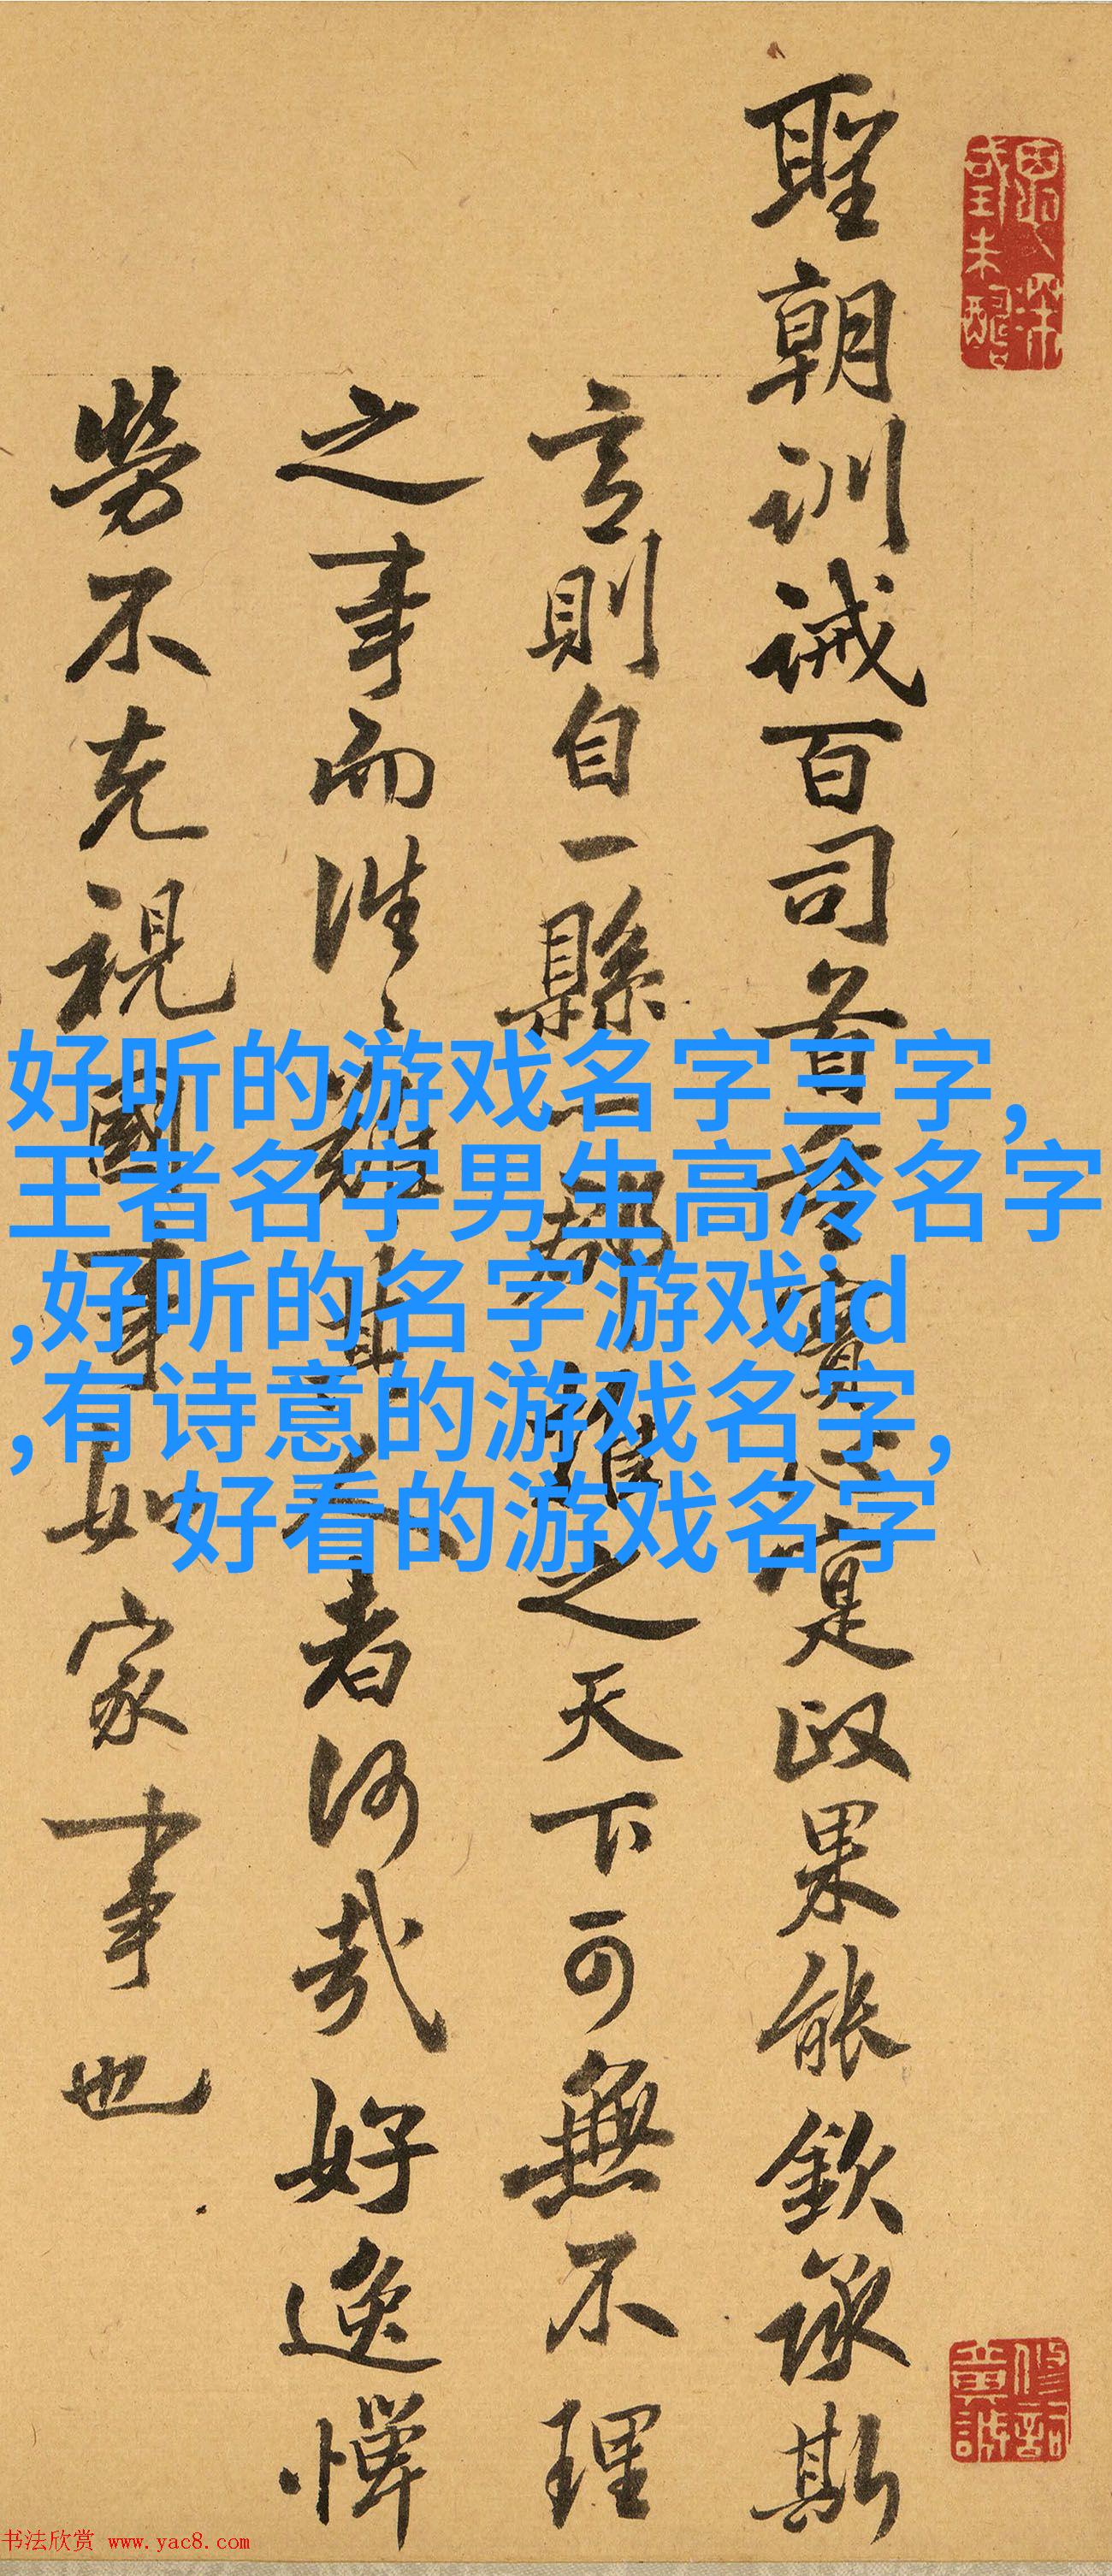 聖朝訓誡百司首實心寔政果能欽承斯
言則自一縣一郡推之天下可無不理
之事而往〻難其人者何哉好逸憚
勞不克視國事如家事也
好听的游戏名字三字,
王者名字男生高冷名字
,好听的名字游戏id
,有诗意的游戏名字,
好看的游戏名字
书法欣赏 www.yac8.com